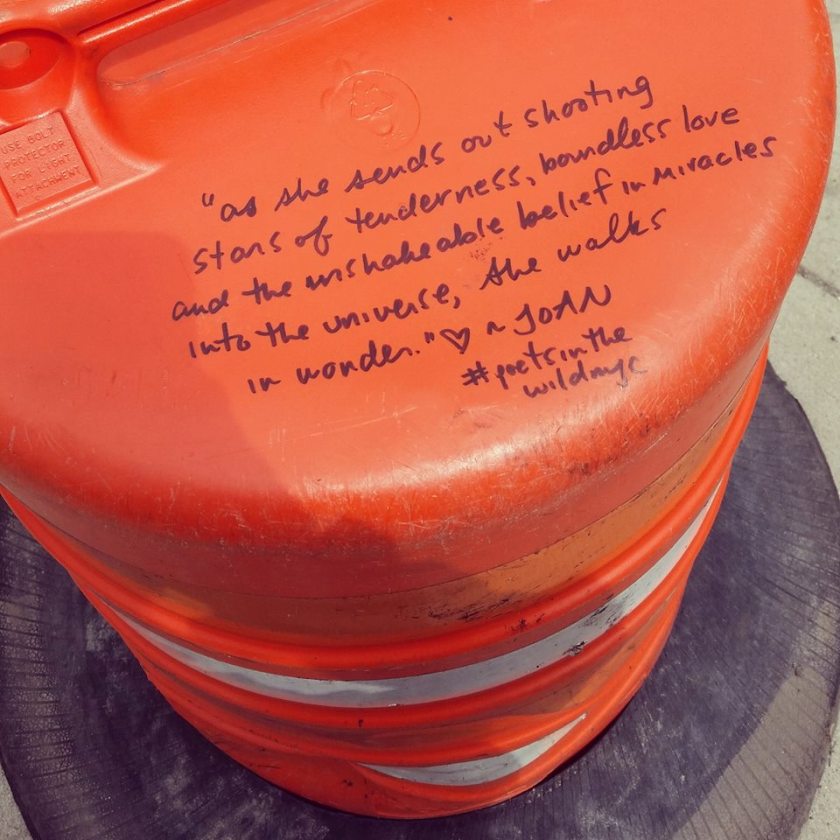 USE BOLT
PROTECTOR
FOR LIGHT
ATTACHMENT
"as she sends out shooting
stars of tenderness, boundless love
and the unshakeable belief in miracles
into the universe, she walks
in wonder." ♡ ~ JOAN
#poetsinthe
wildnyc